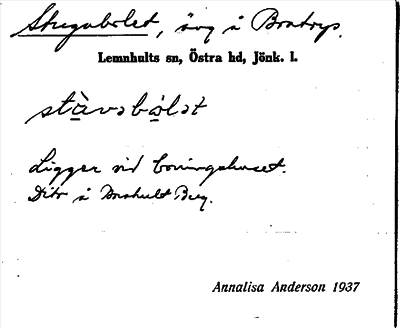 Stugubolet, äng å Bratryp.
Lemnhults sn, Östra hd, Jönk. l.
stàvəbólət
Ligger vid boningshuset.
Dito å
Annalisa Anderson 1937